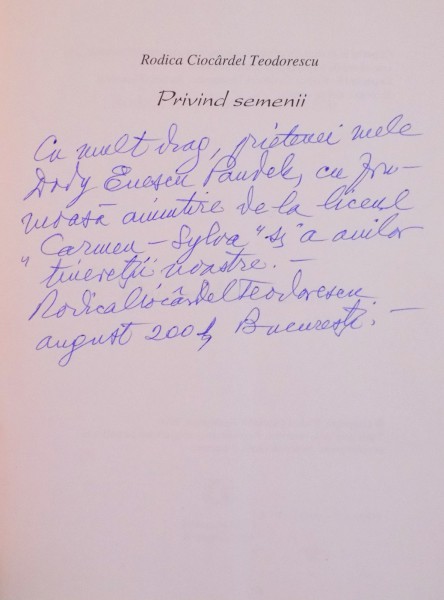 Rodica Ciocârdel Teodorescu
Privind semenii
Cu mult drag, prietenei mele
Dody Enescu Pandele, cu fru-
moasă amintire de la liceul
"Carmen - Sylva" și a anilor
tinereții noastre. -
Rodica Ciocârdel Teodorescu
august București. -